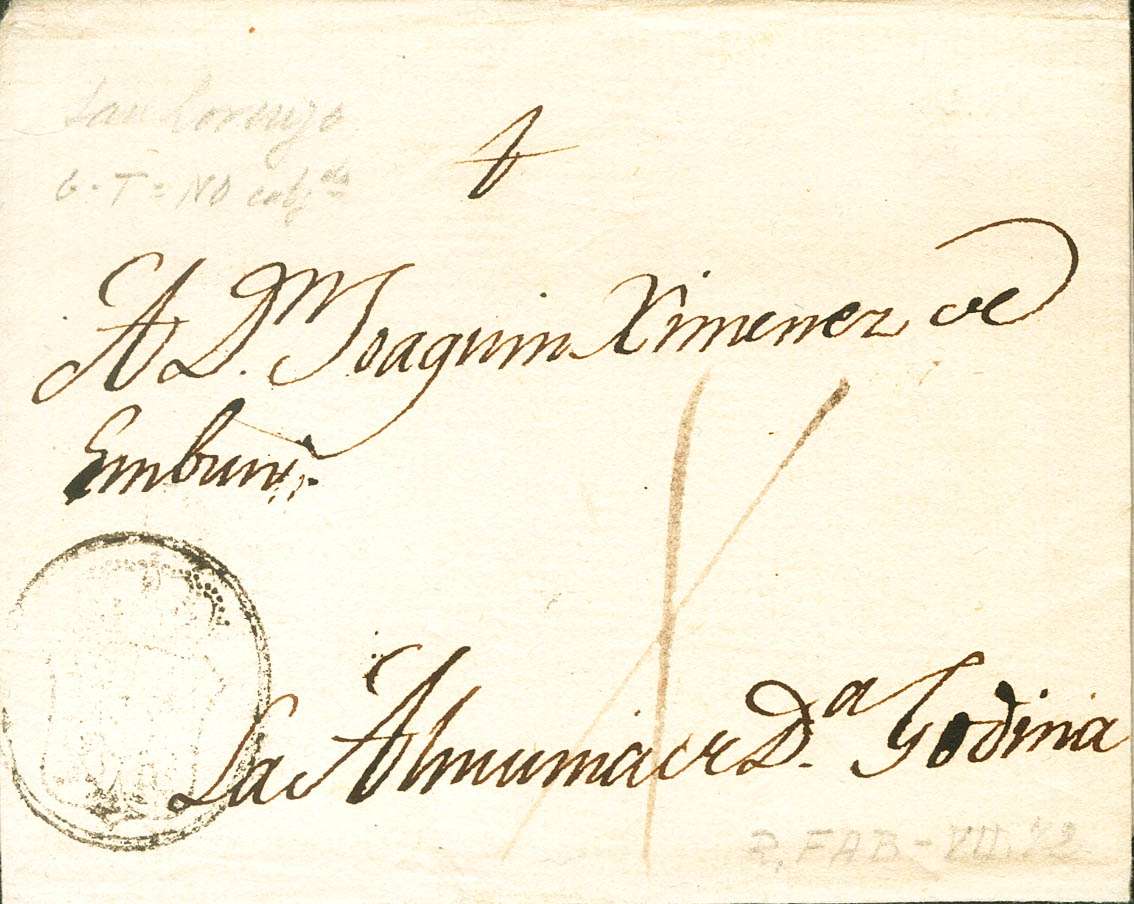 San Lorenzo
G.T = NO
A D.n Joaquin Ximenez de
Embun.
La Almunia de D.a Godina
R. FAB - VII.72